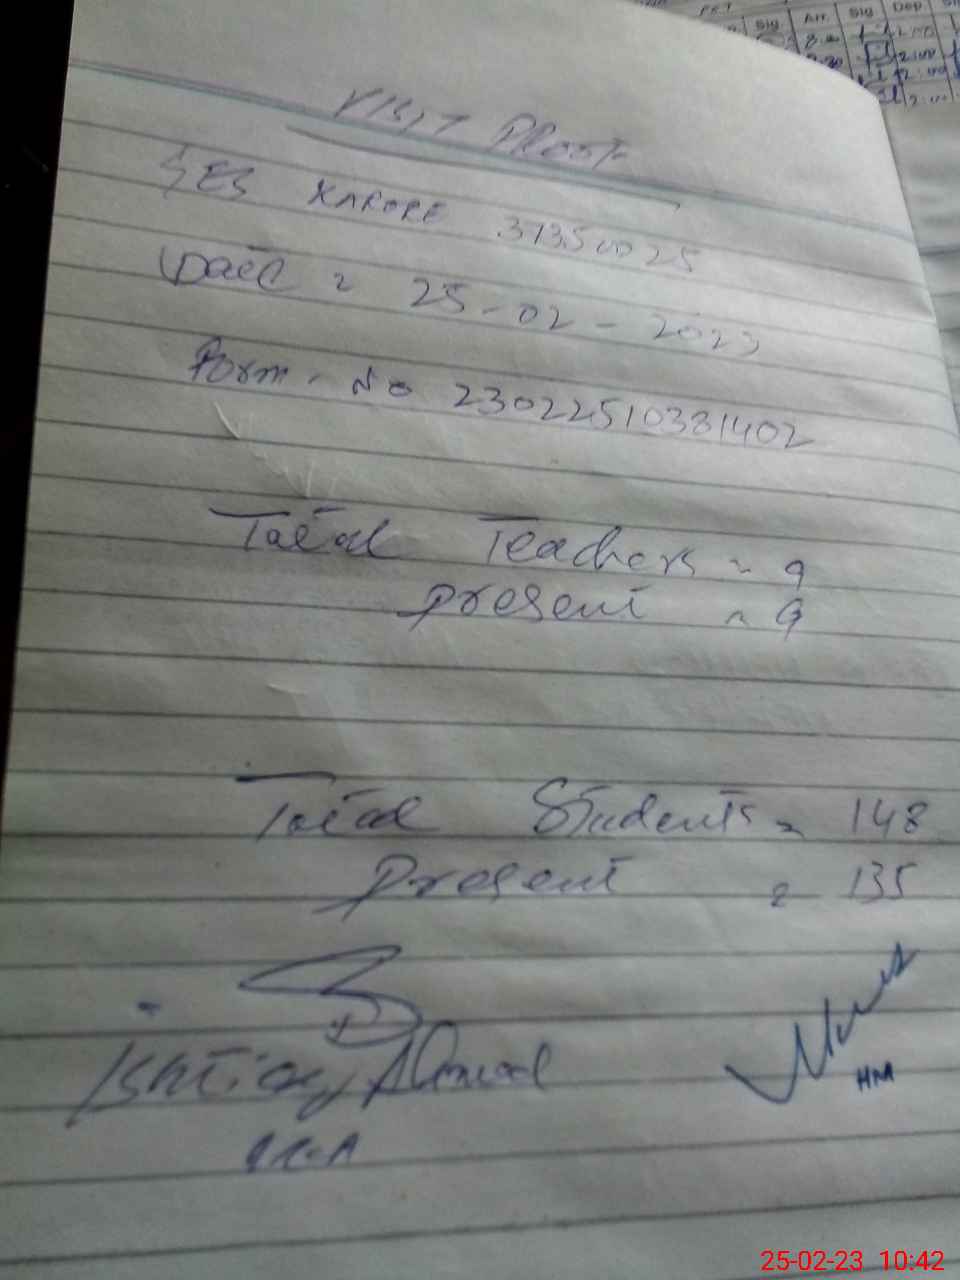 Visit Proof
GES KARORE 37350025
Date = 25-02-2023
Form. No 23022510381402
Total Teachers = 9
present = 9
Total Students = 148
Present = 135
Ishtiaq Ahmad
HM
Sig Arr. Sig Dep.
25-02-23 10:42